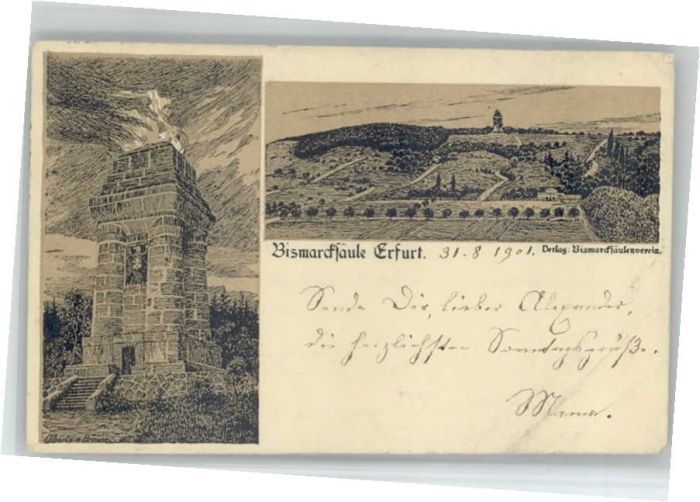 Bismarckſäule Erfurt. 31.8 1901. Verlag: Bismarckſäulenverein.
Sende Dir, lieber Alexander,
die herzlichsten Sonntagsgrüße.
Mama.